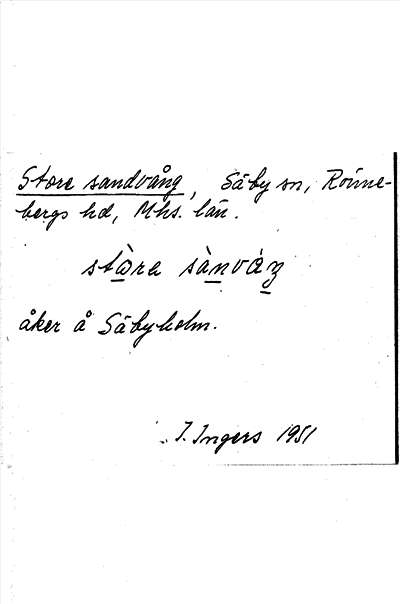 Store sandvång, Säby sn, Rönne-
bergs hd, Mhs. län.
stòra sànváŋ
åker å Säbyholm.
I. Ingers 1951